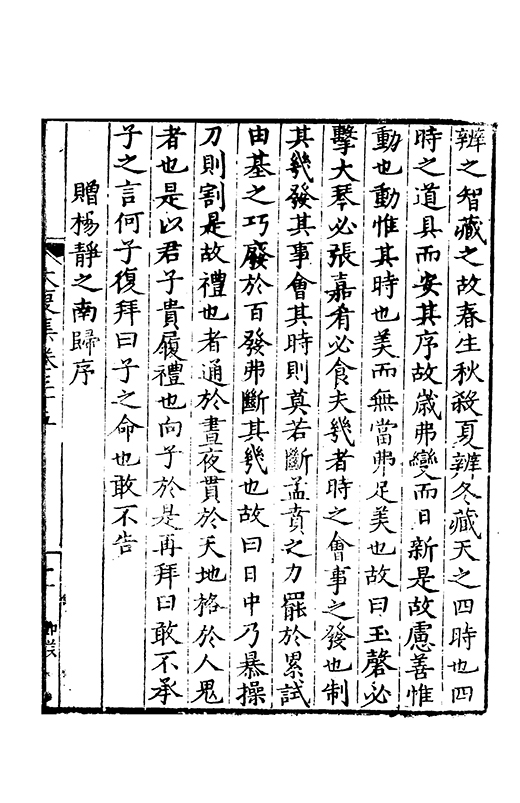 辨之智藏之故春生秋殺夏辨冬藏天之四時也四
時之道具而安其序故歲弗變而日新是故慮善惟
動也動惟其時也美而無當弗足美也故曰玉磬必
擊大琴必張嘉肴必食夫幾者時之會事之發也制
其幾發其事會其時則莫若斷孟賁之力罷於累試
由基之巧廢於百發弗斷其幾也故曰日中乃暴操
刀則割是故禮也者通於晝夜貫於天地格於人鬼
者也是以君子貴履禮也向子於是再拜曰敢不承
子之言何子復拜曰子之命也敢不告
贈楊靜之南歸序
大復集卷三十五